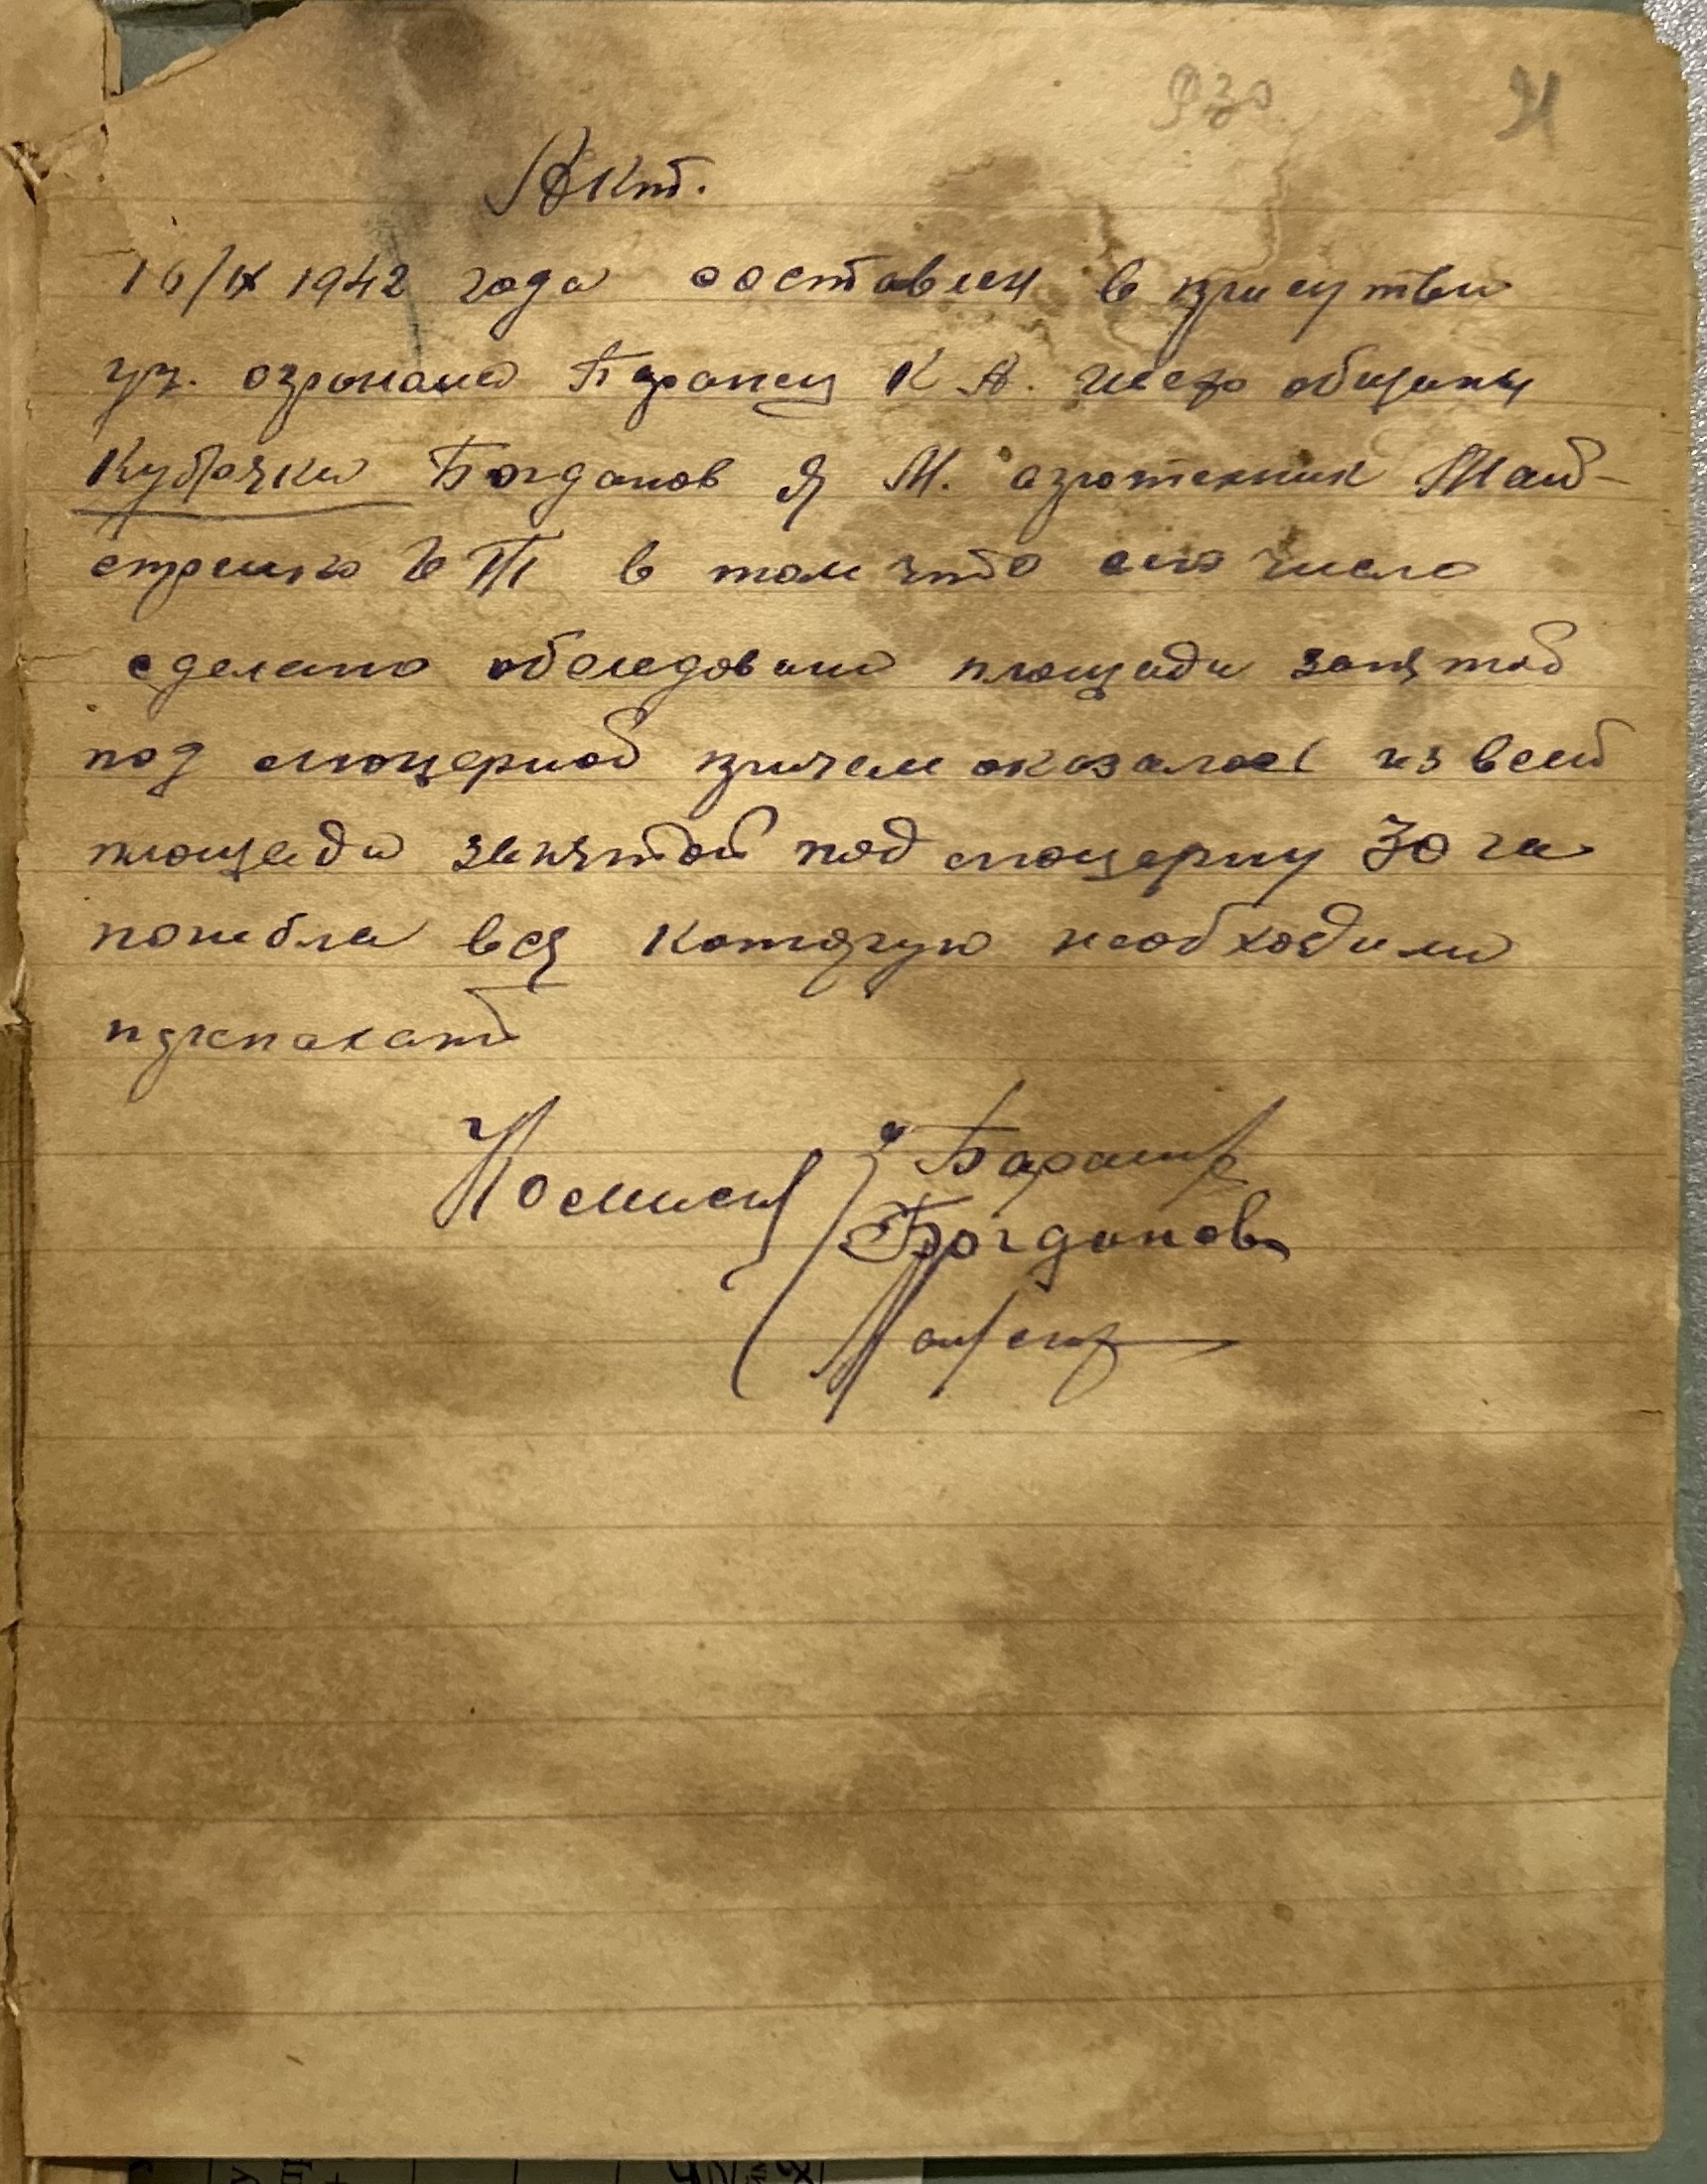 Р30
21
Акт.
16/IX 1942 года составлен в присутви
уч. огронама Баранец К А. общины
Кубрячки Богданов Я М. агротехник Май-
стренко В П в том что сего числа
сделано обследовани площади занятой
под люцерной причем оказалось из всей
площади занятой под люцерну 30 га
погибла вся которую необходимо
перепахать
Комисия Баранец
Богданов